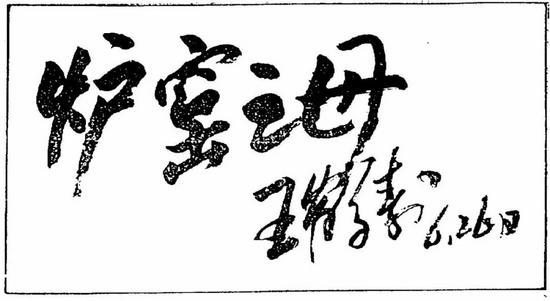 炉窑之母
王鹤寿 6.26日